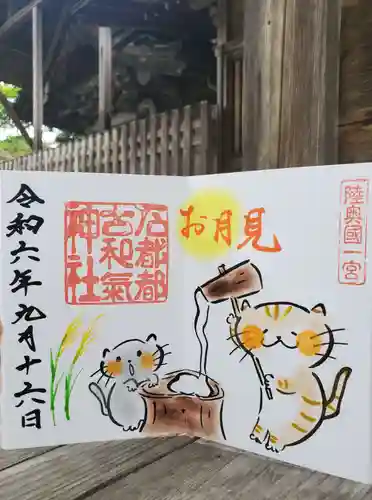 陸奥國一宮
お月見
石都都
古和氣
神社
令和六年九月十六日